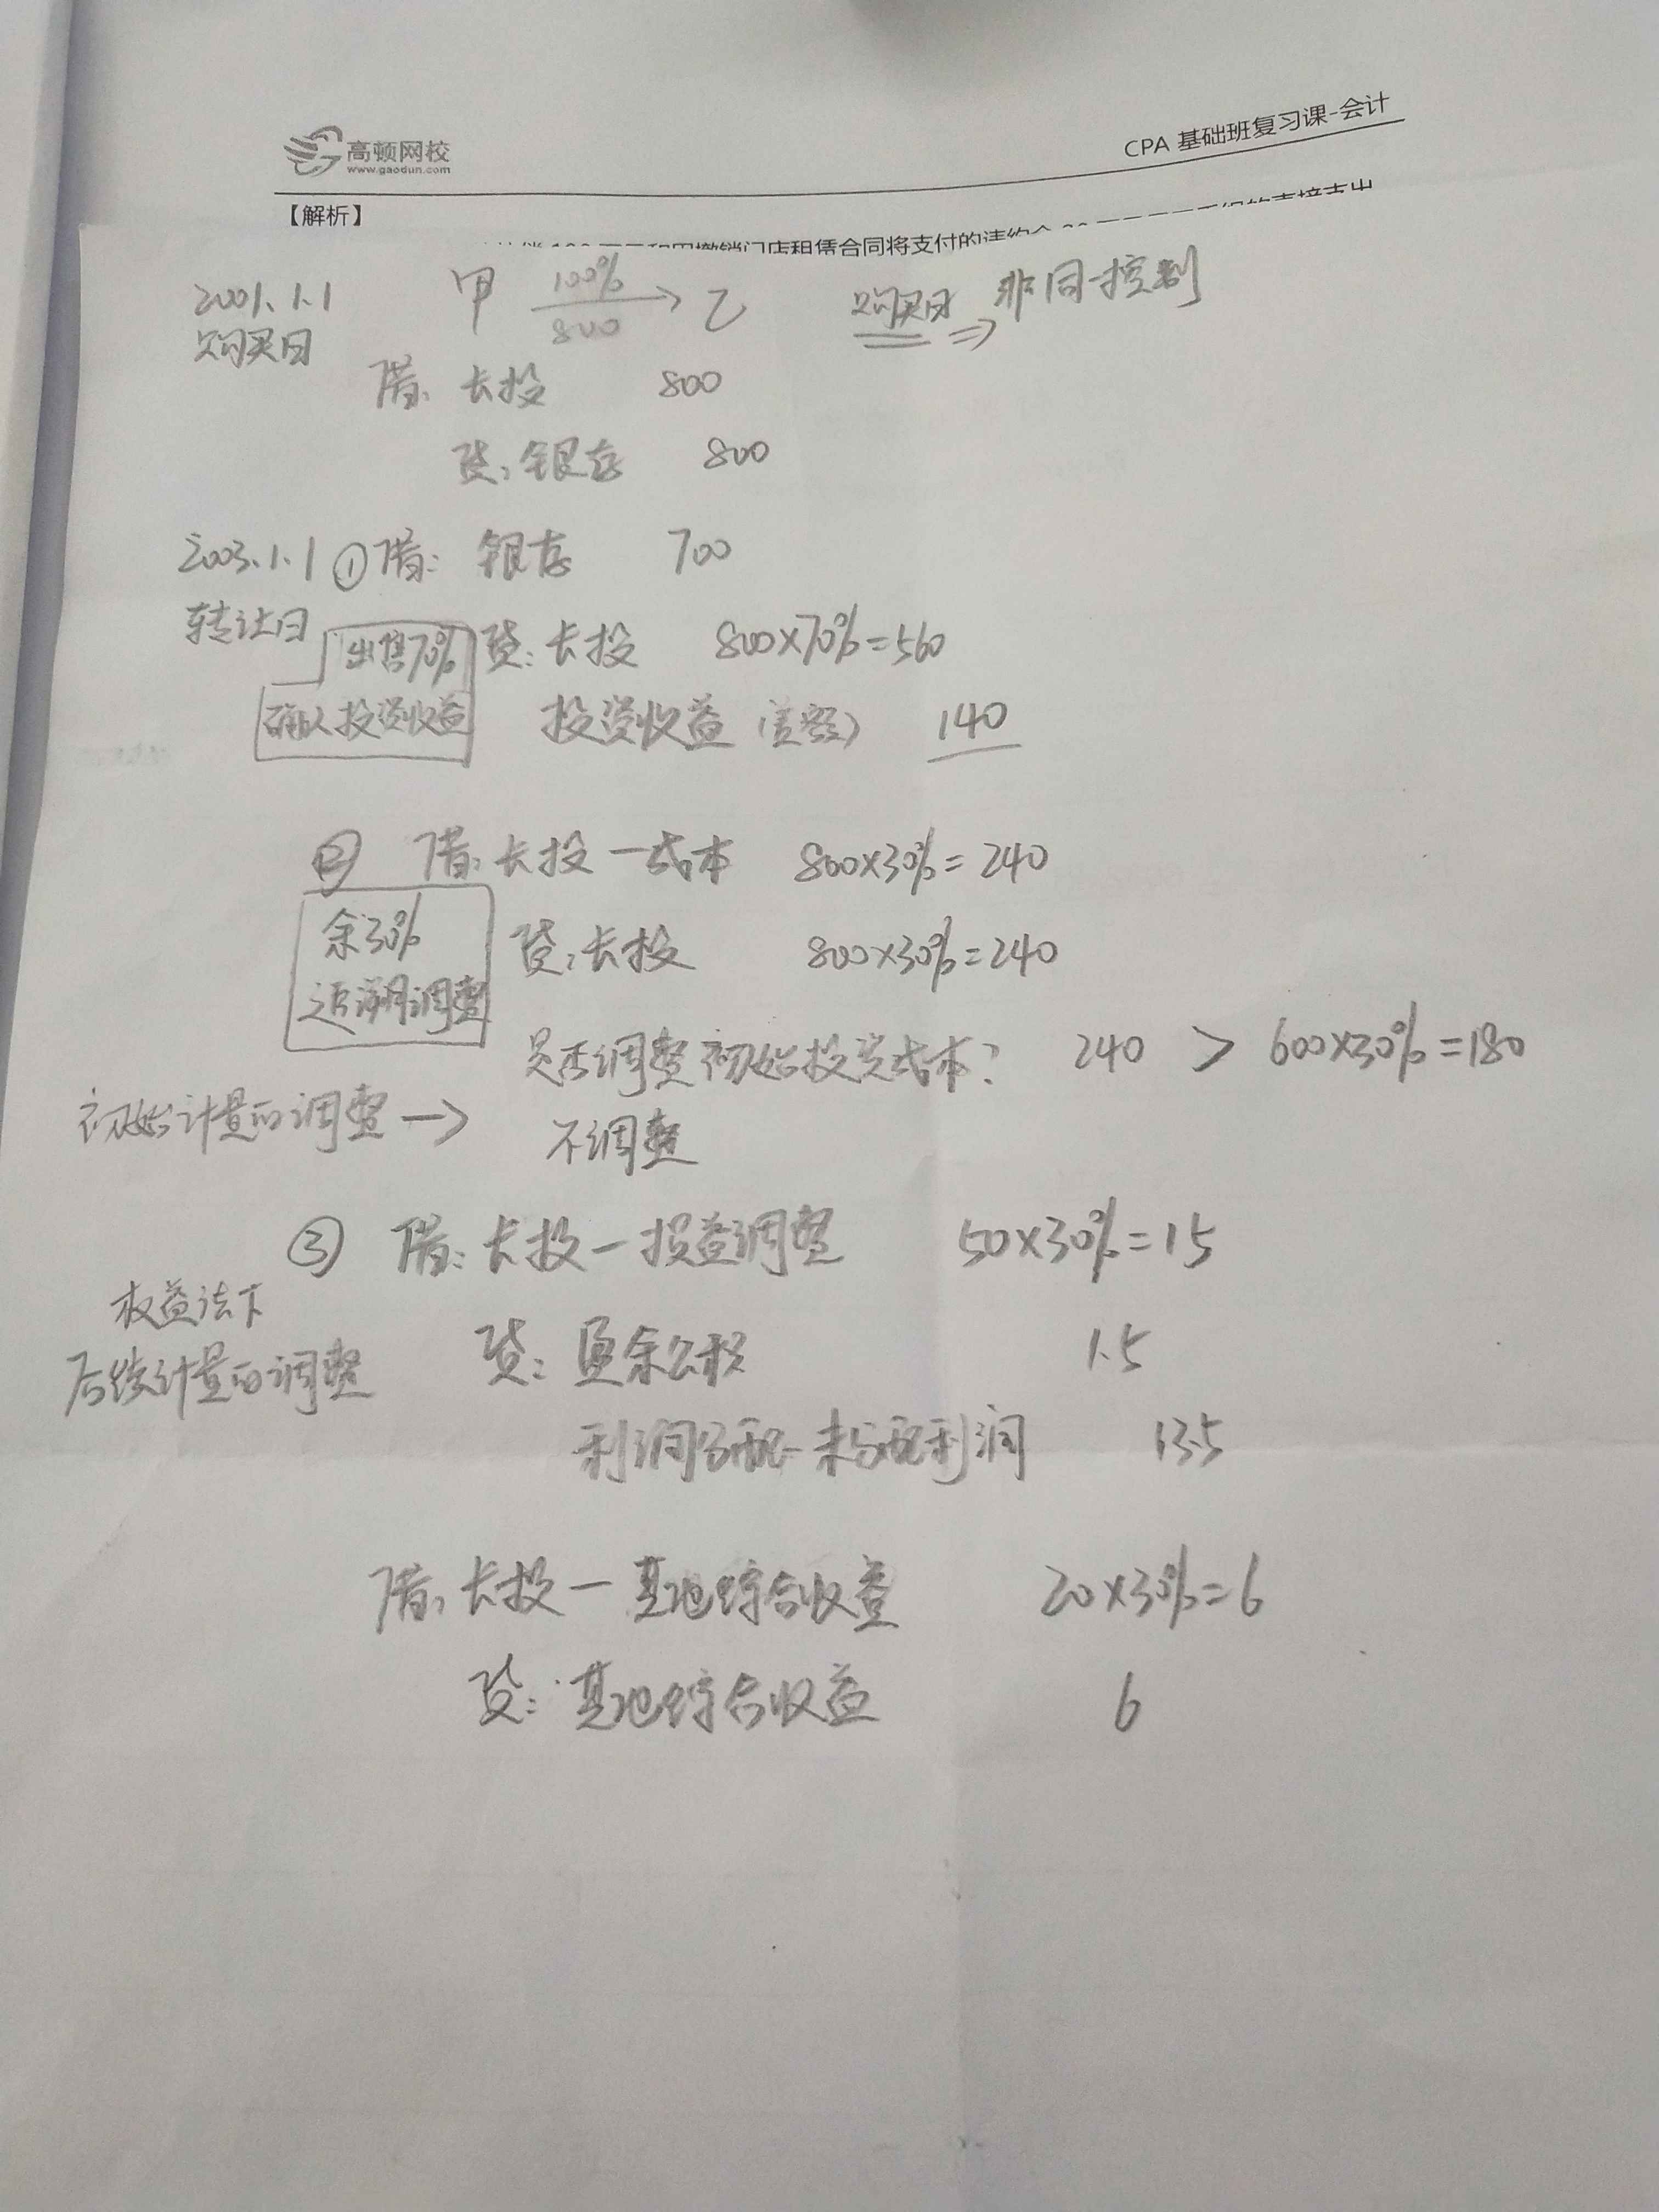 高顿网校
www.gaodun.com
CPA 基础班复习课-会计
【解析】
撤销门店租赁合同将支付的违约金
2001.1.1 甲 100% 800 → 乙 购买日 ⇒ 非同一控制
购买日
借: 长投 800
贷: 银存 800
2003.1.1 ① 借: 银存 700
转让日 出售70% 贷: 长投 800×70%=560
确认投资收益 投资收益(差额) 140
② 借: 长投-成本 800×30%=240
余30% 贷: 长投 800×30%=240
追溯调整
是否调整初始投资成本? 240 > 600×30%=180
初始计量的调整 → 不调整
③ 借: 长投-损益调整 50×30%=15
权益法下
后续计量的调整 贷: 盈余公积 1.5
利润分配-未分配利润 13.5
借: 长投-其他综合收益 20×30%=6
贷: 其他综合收益 6